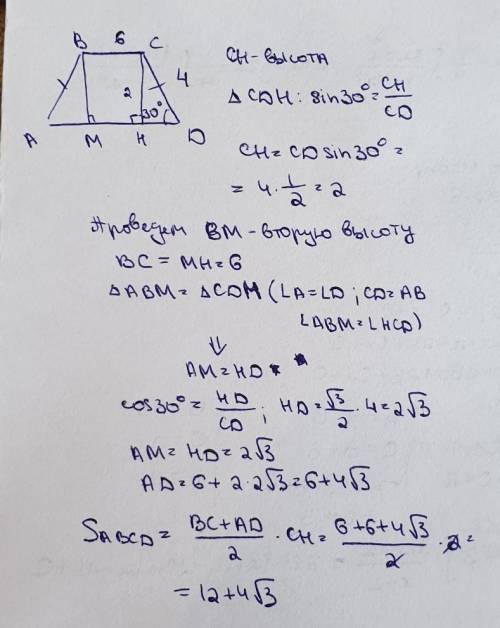 B 6 C
2 4
30°
A M H D
CH - высота
Δ CDH : sin30° = CH/CD
CH = CD sin30° =
= 4 · 1/2 = 2
Проведем BM - вторую высоту
BC = MH = 6
Δ ABM = Δ CDH (∠A = ∠D ; CD = AB
∠ABM = ∠HCD)
⇓
AM = HD
cos30° = HD/CD ; HD = √3/2 · 4 = 2√3
AM = HD = 2√3
AD = 6 + 2 · 2√3 = 6 + 4√3
S ABCD = (BC + AD)/2 · CH = (6 + 6 + 4√3)/2 · 2 =
= 12 + 4√3